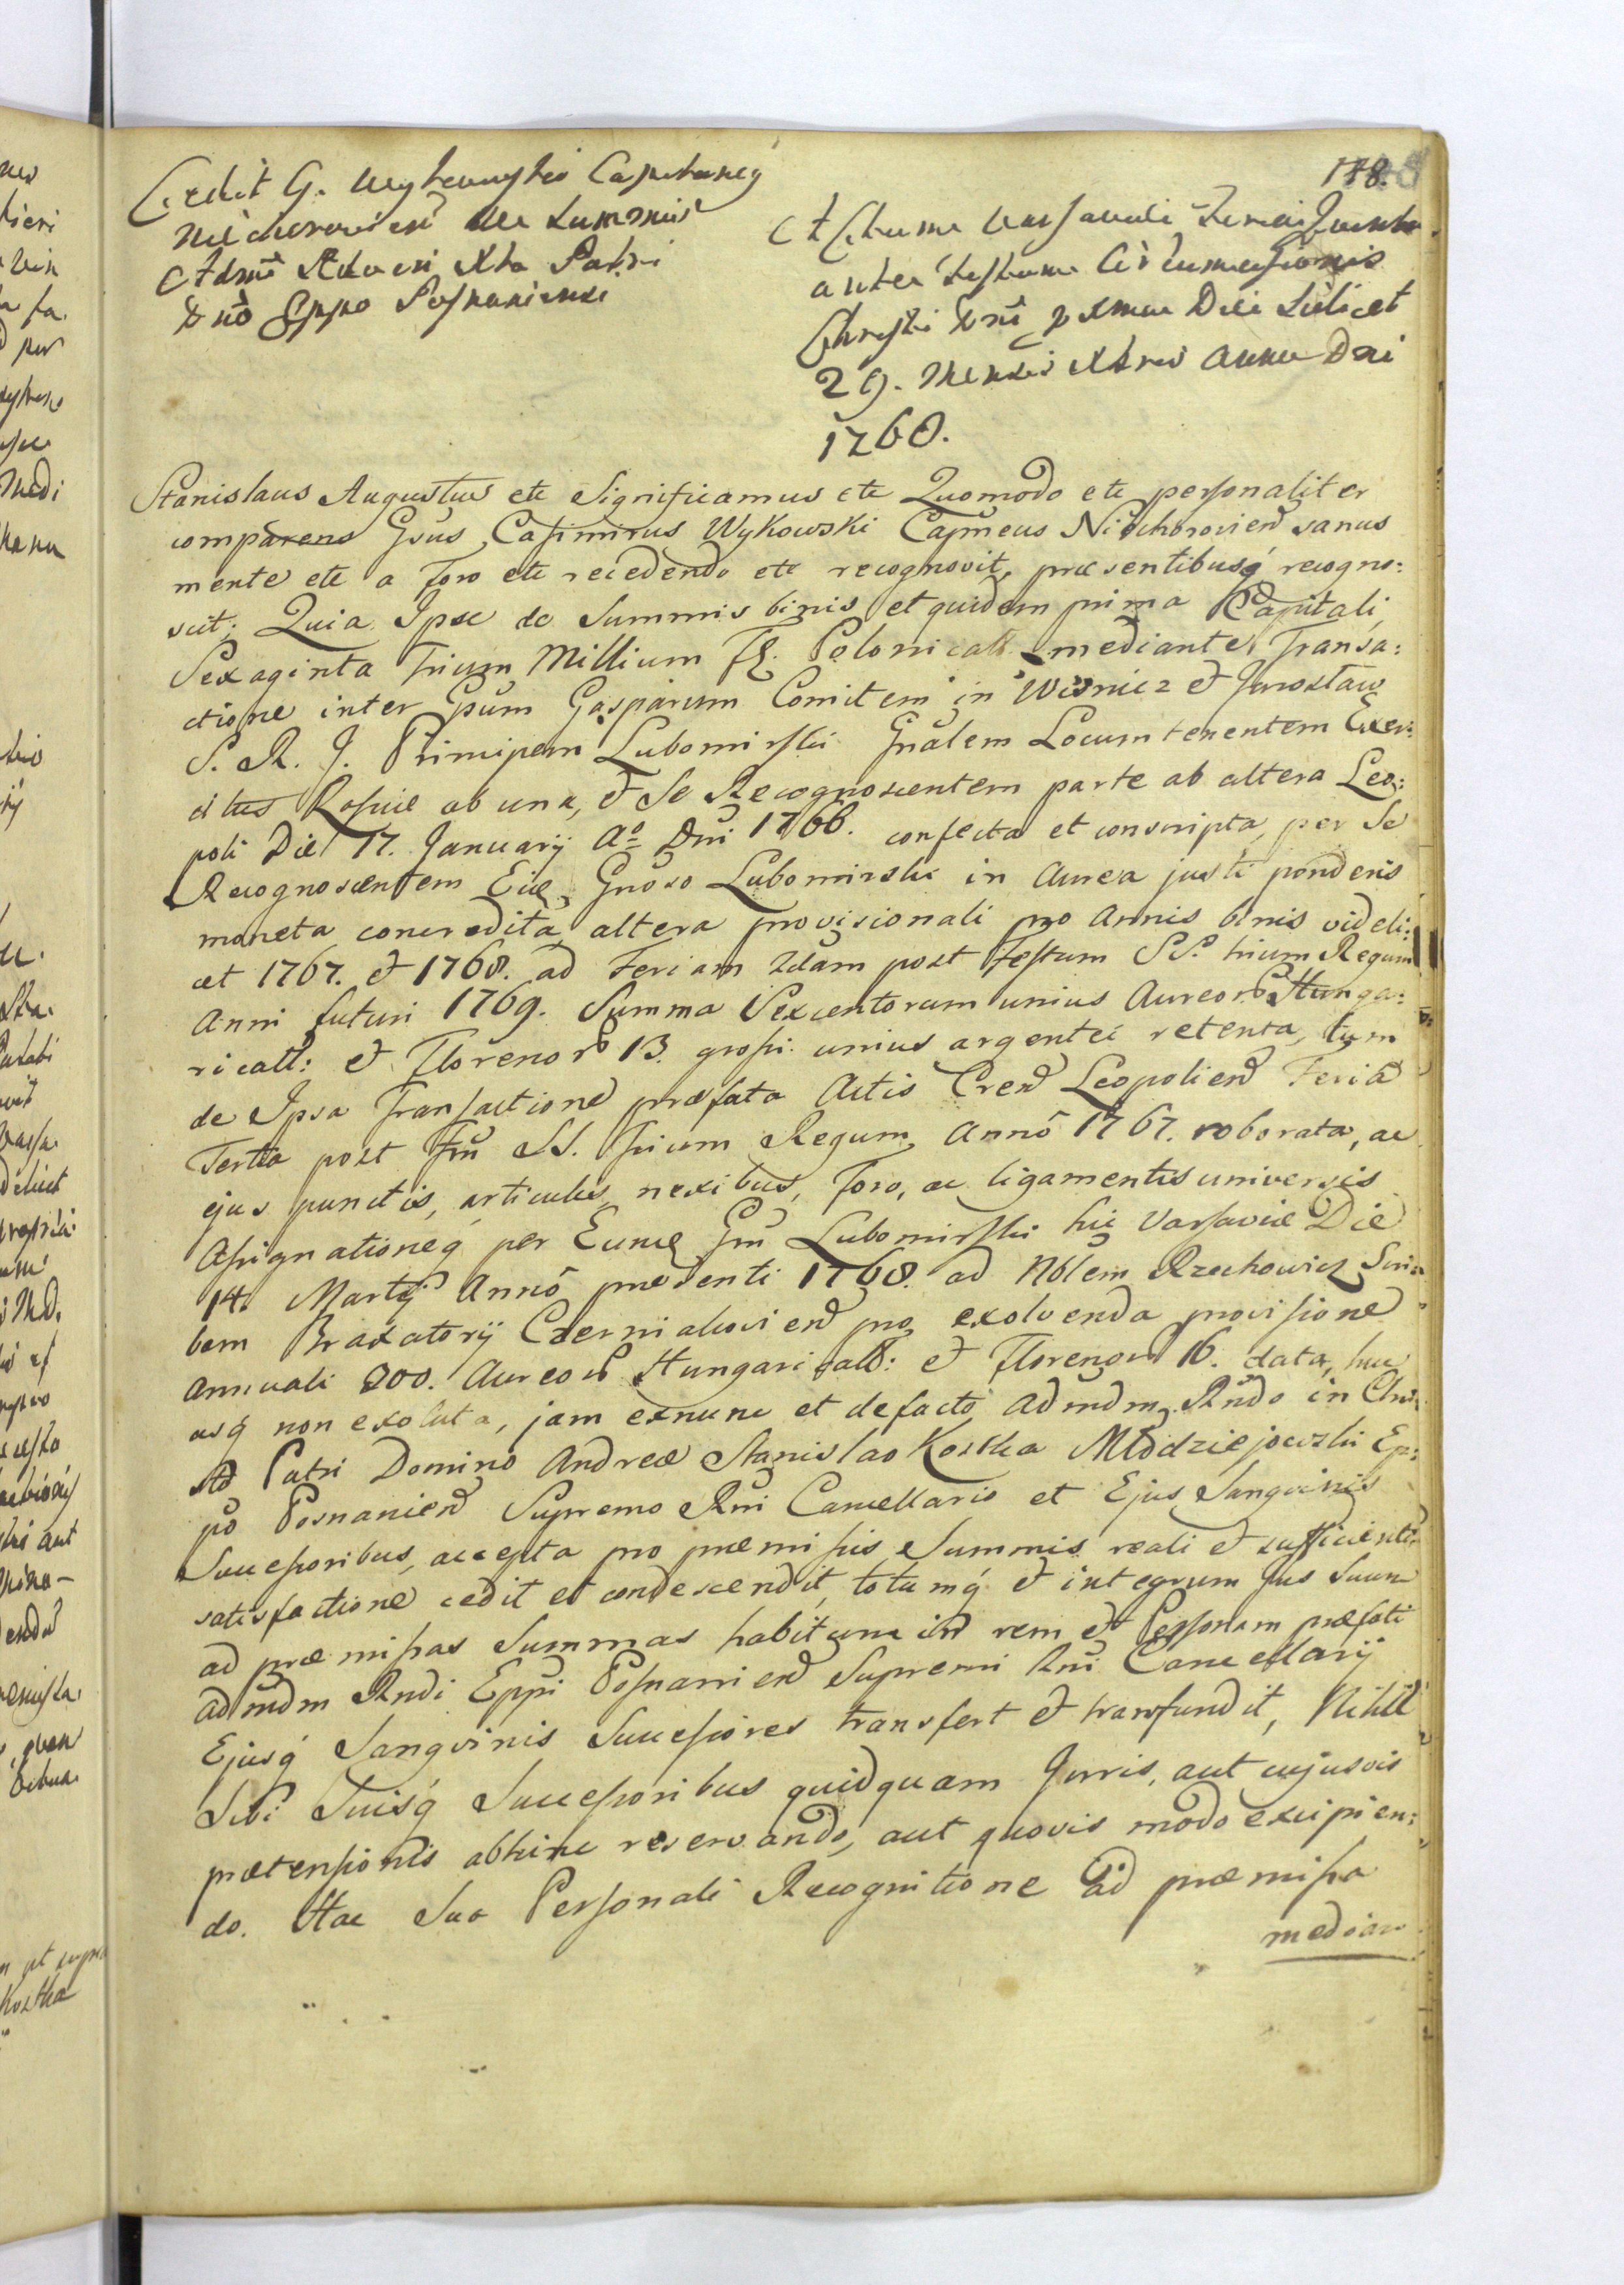 188.
Cedit G. Wykowski Capitaneus
Niechorovien de Summis
Adm Rdo in Xto Patri
Dno Eppo Posnaniensi
Actum Varsaviæ Feria Quinta
ante Festum Circumcisionis
Christi Dni pxma Die Scilicet
29. Mensis Xbris Anno Dni
1768.
Stanislaus Augustus etc Significamus etc Quomodo etc personaliter
comparens Gsus Casimirus Wykowski Capneus Nichorovien sanus
mente etc a Foro etc recedendo etc recognovit, præsentibusq recogno:
scit; Quia Ipse de Summis binis et quidem prima Capitali
Sexaginta trium Millium Fl. Polonicall mediante Transa:
ctione inter Gsum Gasparum Comitem in Wisnicz et Jarosław
S. R. J. Principem Lubomirski Gnalem Locumtenentem Exer:
citus Rossiæ ab una, et Se Recognoscentem parte ab altera Leo:
poli Die 17. January Ao Dni 1766. confecta et conscripta, per Se
Recognoscentem Eidem Gnoso Lubomirski in Aurea justi ponderis
moneta concredita, altera provisionali pro Annis binis videli:
cet 1767. et 1768. ad Feriam 2dam post Festum SS. trium Regum
Anni futuri 1769. Summa Sexcentorum unius Aureor Hunga:
ricall: et Florenor 13. grossi unius argentei retenta, tum
de Ipsa Transactione præfata Actis Cren Leopolien Feria
Tertia post Ftm SS. trium Regum, Anno 1767. roborata, ac
ejus punctis, articulis, nexibus, Foro, ac ligamentis universis
Assignationeq per Eund Gnm Lubomirski hic Varsaviæ Die
14. Martij Anno præsenti 1768. ad Nblem Rzechowicz Scri:
bam Braxatorij Czerniakovien pro exolvenda provisione
annuali 300. Aureor Hungaricall: et Florenor 16. data, huc
usq non exoluta, jam exnunc et defacto Admdm Rndo in Chri
sto Patri Domino Andreæ Stanislao Kostka Młodziejowski Ep:
po Posnanien Supremo Rni Cancellario et Ejus Sangvinis
Successoribus, accepta pro præmissis Summis reali et sufficienti
satisfactione cedit et condescendit, totumq et integrum Jus Suum
ad præmissas Summas habitum in rem et Personam præfati
Admdm Rndi Eppi Posnanien Supremi Rni Cancellarij
Ejusq Sangvinis Successores transfert et transfundit, Nihil
Sibi Suisq Successoribus quidquam Juris, aut cujusvis
prætensionis abhinc reservando, aut quovis modo excipien:
do. Hac Sua Personali Recognitione ad præmissa
median